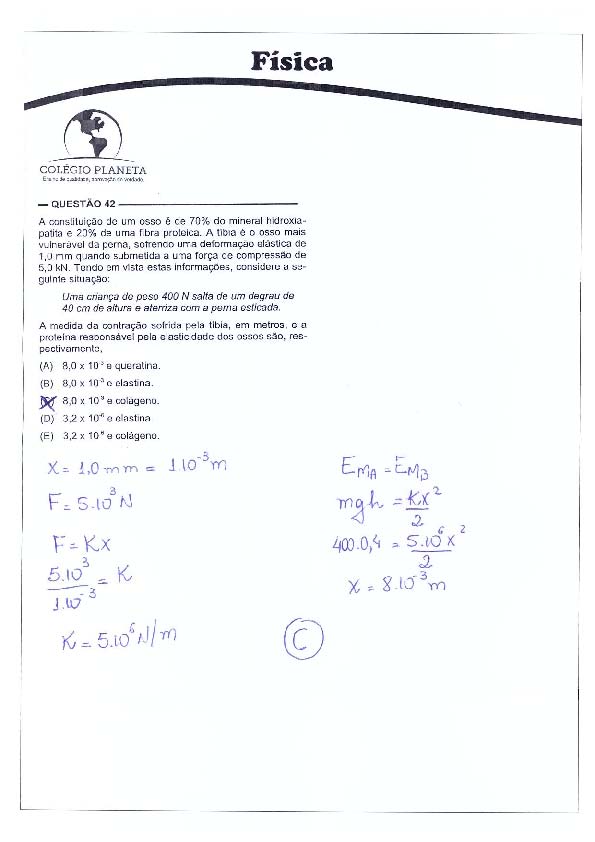 Física
COLÉGIO PLANETA
Ensino de qualidade, aprovação de verdade.
— QUESTÃO 42 —
A constituição de um osso é de 70% do mineral hidroxia-
patita e 20% de uma fibra proteica. A tíbia é o osso mais
vulnerável da perna, sofrendo uma deformação elástica de
1,0 mm quando submetida a uma força de compressão de
5,0 kN. Tendo em vista estas informações, considere a se-
guinte situação:
Uma criança de peso 400 N salta de um degrau de
40 cm de altura e aterriza com a perna esticada.
A medida da contração sofrida pela tíbia, em metros, e a
proteína responsável pela elasticidade dos ossos são, res-
pectivamente,
(A) 8,0 x 10⁻³ e queratina.
(B) 8,0 x 10⁻³ e elastina.
8,0 x 10⁻³ e colágeno.
(D) 3,2 x 10⁻⁶ e elastina
(E) 3,2 x 10⁻⁶ e colágeno.
X = 1,0 mm = 1.10⁻³ m
F = 5.10³ N
F = KX
5.10³ / 1.10⁻³ = K
K = 5.10⁶ N/m
EMA = EMB
mgh = KX² / 2
400.0,4 = 5.10⁶ X² / 2
X = 8.10⁻³ m
C